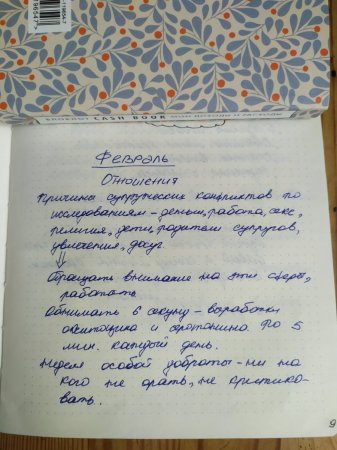 БЛОКНОТ CASH BOOK МОИ ДОХОДЫ И РАСХОДЫ
Февраль
Отношения
Причины супружеских конфликтов по
исследованиям - деньги, работа, секс,
религия, дети, родители супругов,
увлечения, досуг.
Обращать внимание на эти сферы,
работать
Обнимать в секунду - выработки
окситоцина и серотонина. По 5
мин. каждый день.
Неделя особой доброты - ни на
кого не орать, не критико-
вать.
9